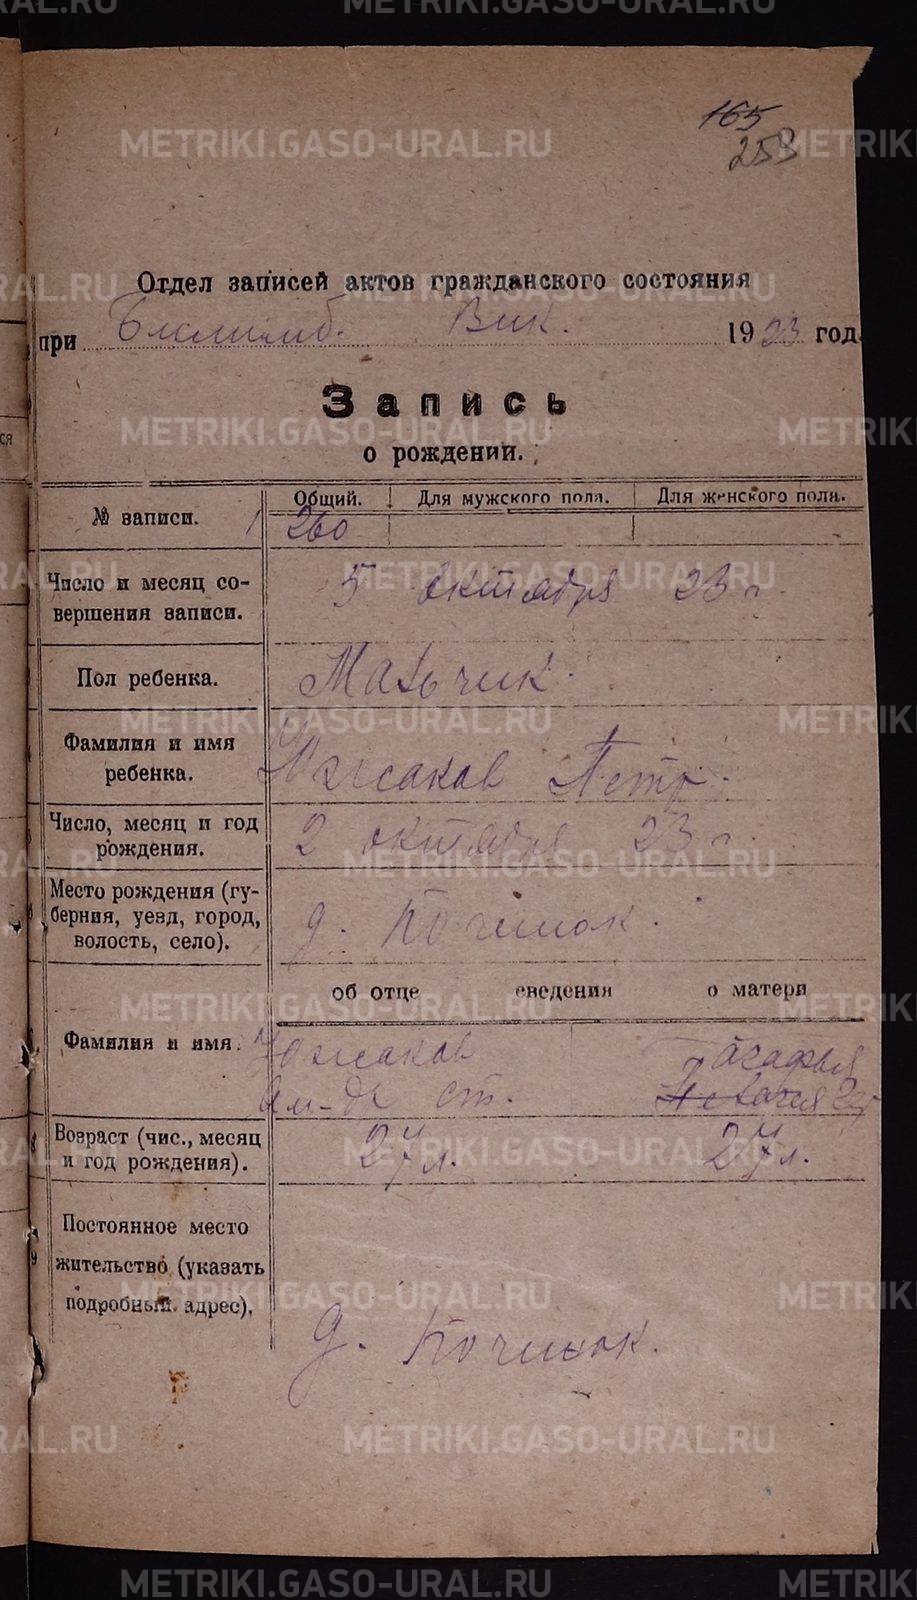 165
253
Отдел записей актов гражданского состояния
при Вик. 1923 год
Запись
о рождении.
№ записи.
Общий. Для мужского пола. Для женского пола.
260
Число и месяц со-
вершения записи.
5 октября 23 г.
Пол ребенка.
Мальчик.
Фамилия и имя
ребенка.
Южаков Петр.
Число, месяц и год
рождения.
2 октября 23 г.
Место рождения (гу-
берния, уезд, город,
волость, село).
д. Починок.
об отце сведения о матери
Фамилия и имя.
Южаков Агафья
ст.
Возраст (чис., месяц
и год рождения).
27 л. 27 л.
Постоянное место
жительство (указать
подробный адрес).
д. Починок.
METRIKI.GASO-URAL.RU